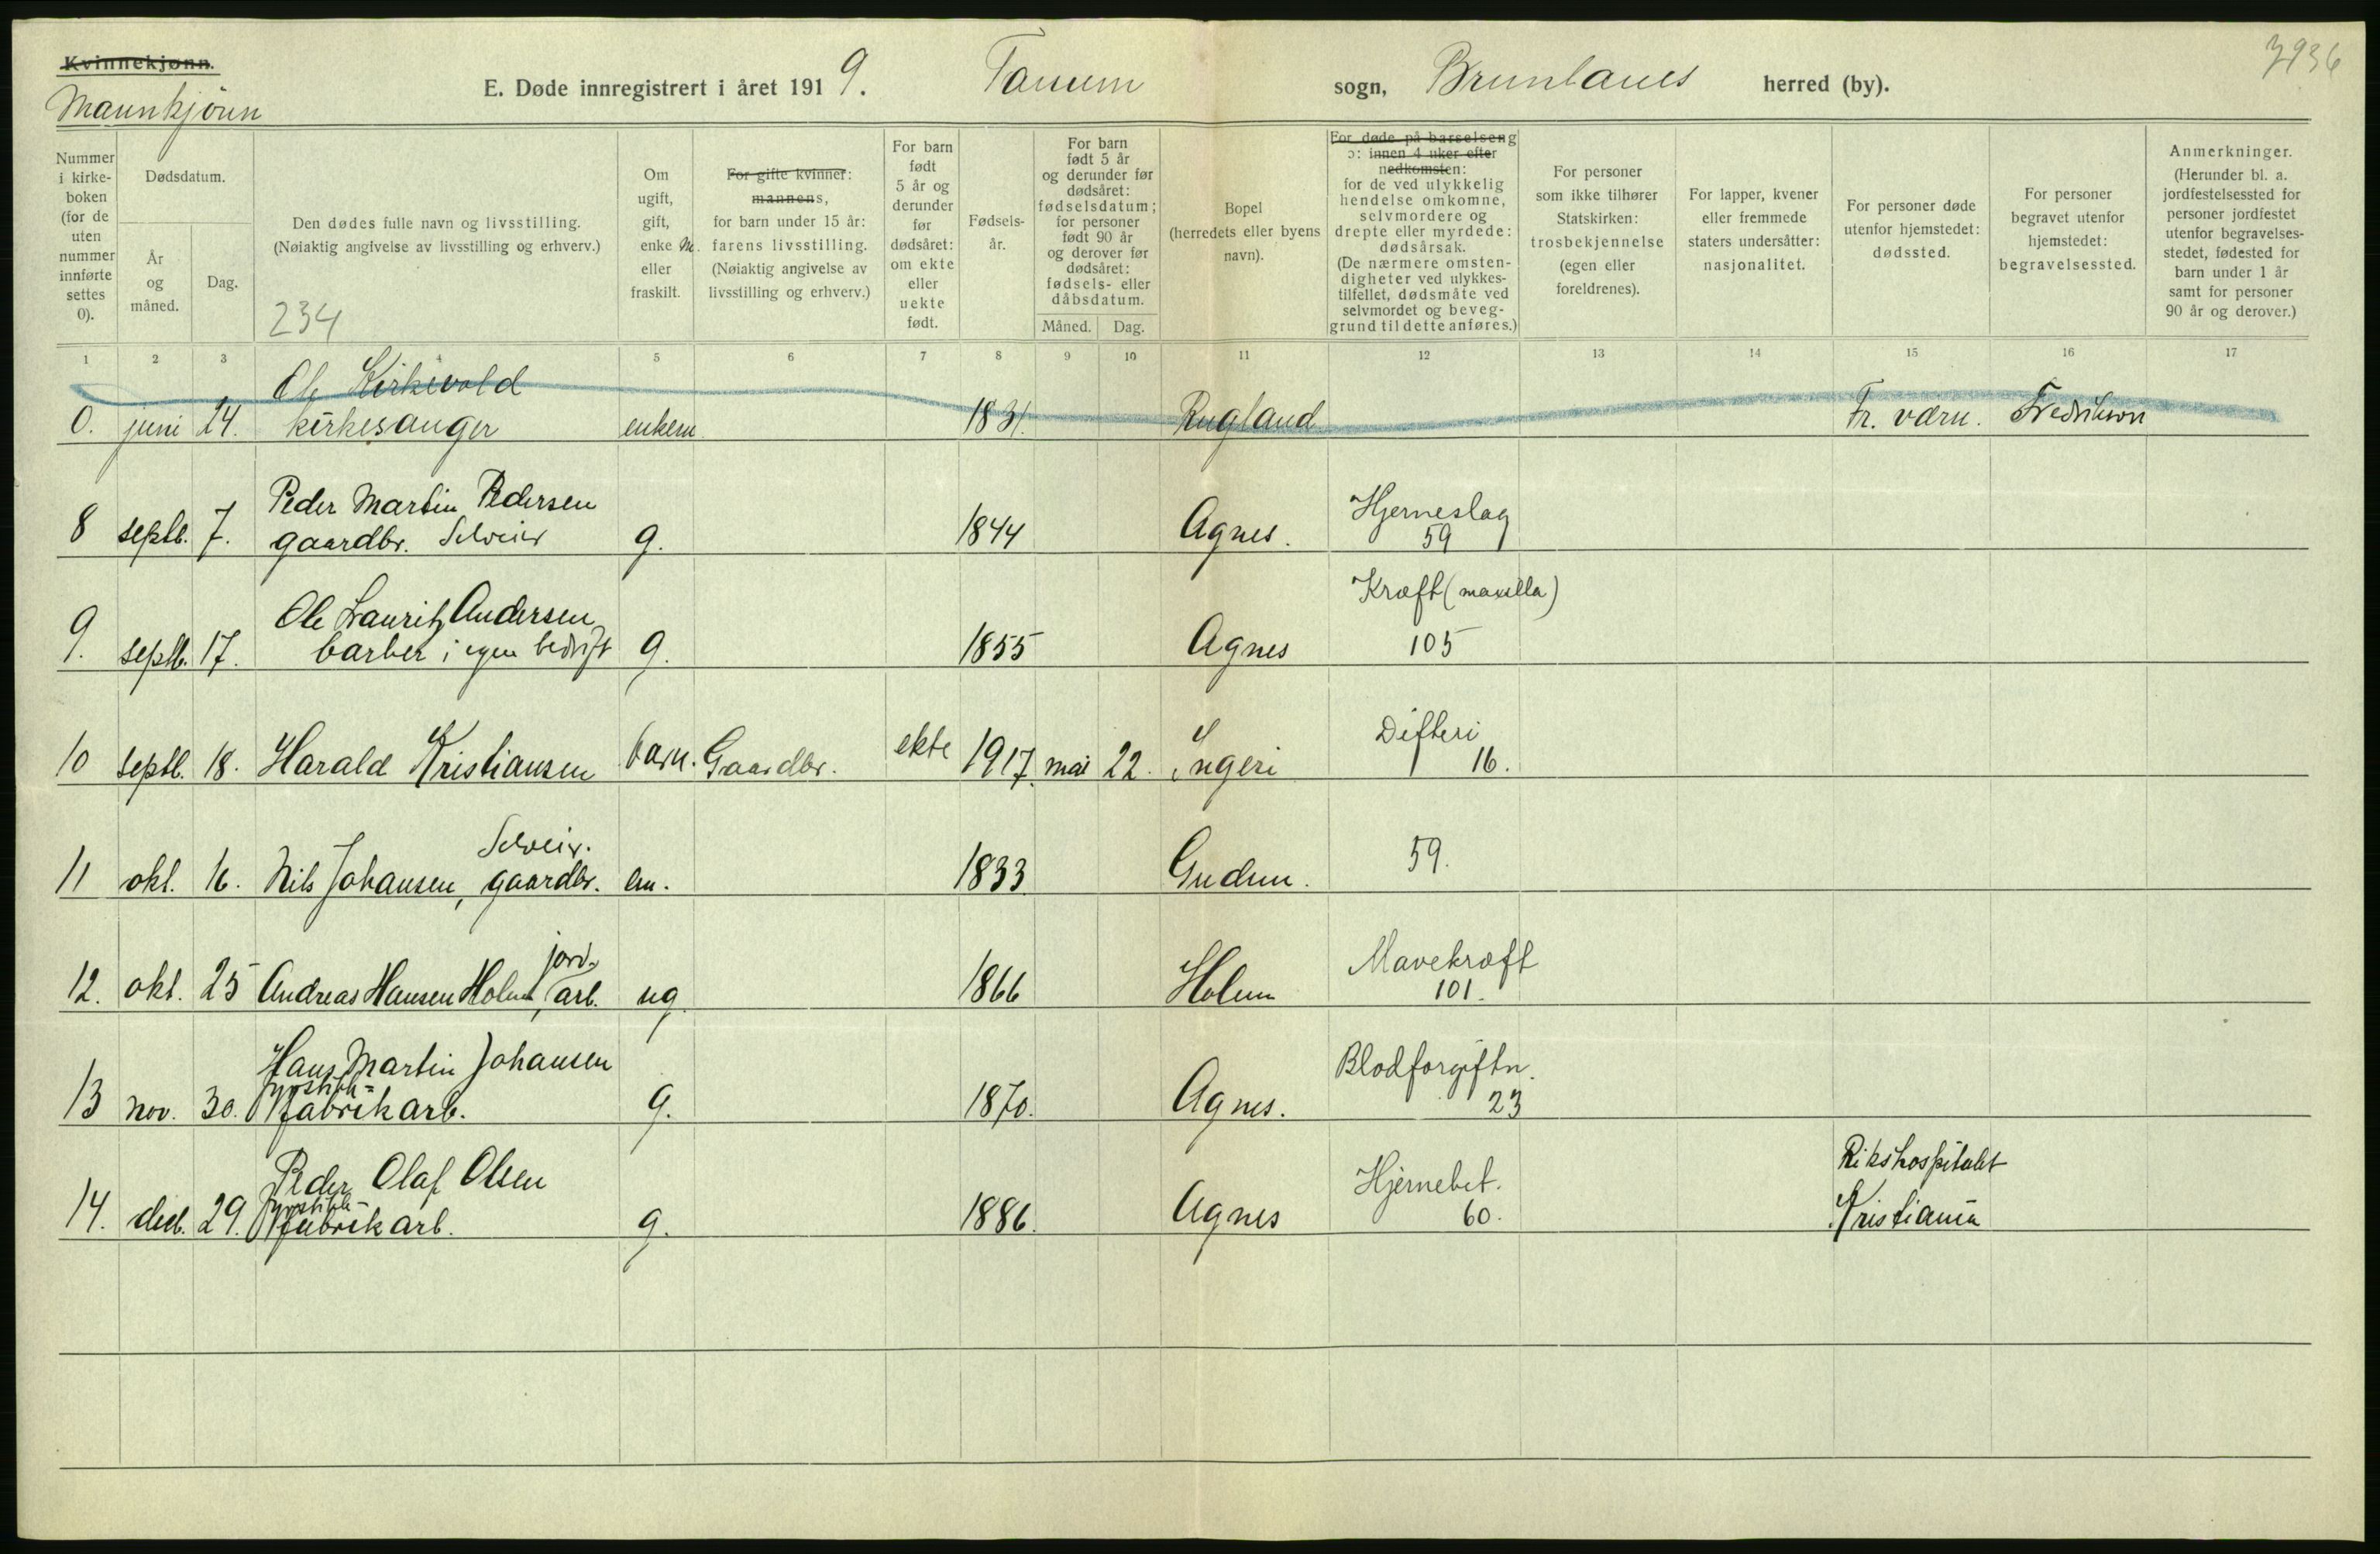 Kvinnekjønn.
Mannkjönn
E. Døde innregistrert i året 1919. Tanum sogn, Brunlanes herred (by).
7936
Nummer i kirkeboken (for de uten nummer innførte settes 0).
Dødsdatum.
År og måned.
Dag.
Den dødes fulle navn og livsstilling.
(Nøiaktig angivelse av livsstilling og erhverv.)
234
Om ugift, gift, enke M. eller fraskilt.
For gifte kvinner: mannens,
for barn under 15 år: farens livsstilling.
(Nøiaktig angivelse av livsstilling og erhverv.)
For barn født 5 år og derunder før dødsåret: om ekte eller uekte født.
Fødselsår.
For barn født 5 år og derunder før dødsåret: fødselsdatum; for personer født 90 år og derover før dødsåret: fødsels- eller dåbsdatum.
Måned. Dag.
Bopel (herredets eller byens navn).
For døde på barselseng ɔ: innen 4 uker efter nedkomsten:
for de ved ulykkelig hendelse omkomne, selvmordere og drepte eller myrdede: dødsårsak.
(De nærmere omstendigheter ved ulykkestilfellet, dødsmåte ved selvmordet og beveggrund til dette anføres.)
For personer som ikke tilhører Statskirken: trosbekjennelse (egen eller foreldrenes).
For lapper, kvener eller fremmede staters undersåtter: nasjonalitet.
For personer døde utenfor hjemstedet: dødssted.
For personer begravet utenfor hjemstedet: begravelsessted.
Anmerkninger.
(Herunder bl. a. jordfestelsessted for personer jordfestet utenfor begravelsesstedet, fødested for barn under 1 år samt for personer 90 år og derover.)
1 2 3 4 5 6 7 8 9 10 11 12 13 14 15 16 17
Ole Kirkevold
0. juni 24. kirkesanger enkem 1831. Rugland Fr. værn. Fredriksvn
Peder Martin Pedersen Hjerneslag
8 septb. 7. gaardbr. Selveier g. 1844 Agnes. 59
Ole Lauritz Andersen Kræft (maxilla)
9. septb. 17. barber i egen bedrift g. 1855 Agnes 105
Difteri
10 septb. 18. Harald Kristiansen barn. Gaardbr. ekte 1917. mai 22. Ingeri 16.
Selveier. 59.
11 okt. 16. Nils Johansen, gaardbr. em. 1833 Gudem.
jord- Mavekræft
12. okt. 25 Andreas Hansen Holm, arb. ug. 1866 Holm 101.
Hans Martin Johansen Blodforgiftn.
13 nov. 30. fabrikarb. g. 1870. Agnes. 23
Peder Olaf Olsen Hjernebet. Rikshospitalet
14. decb. 29. fabrikarb. g. 1886. Agnes 60. Kristiania